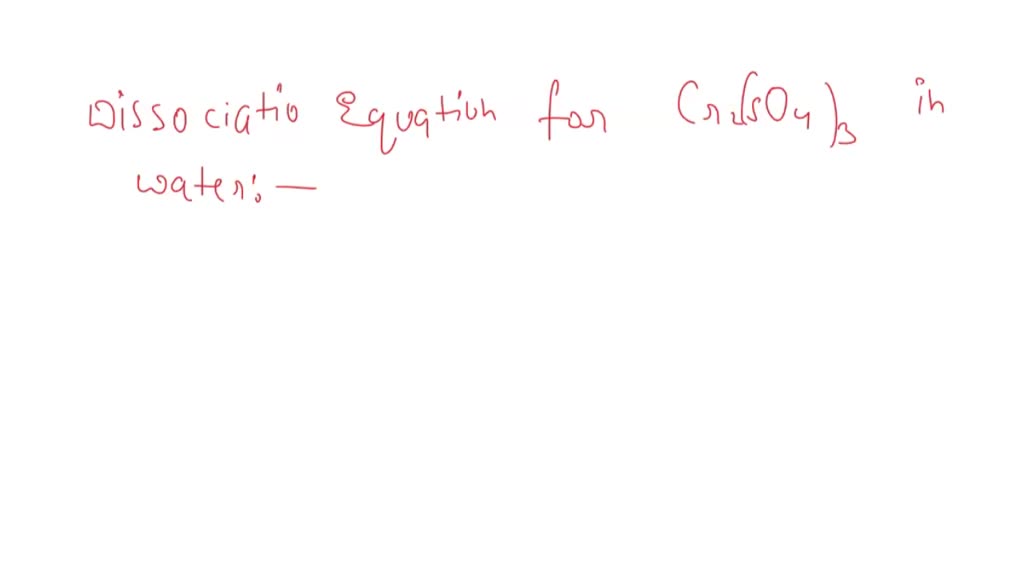 Dissociatio Equation for Cr₂(SO₄)₃ in
water:—